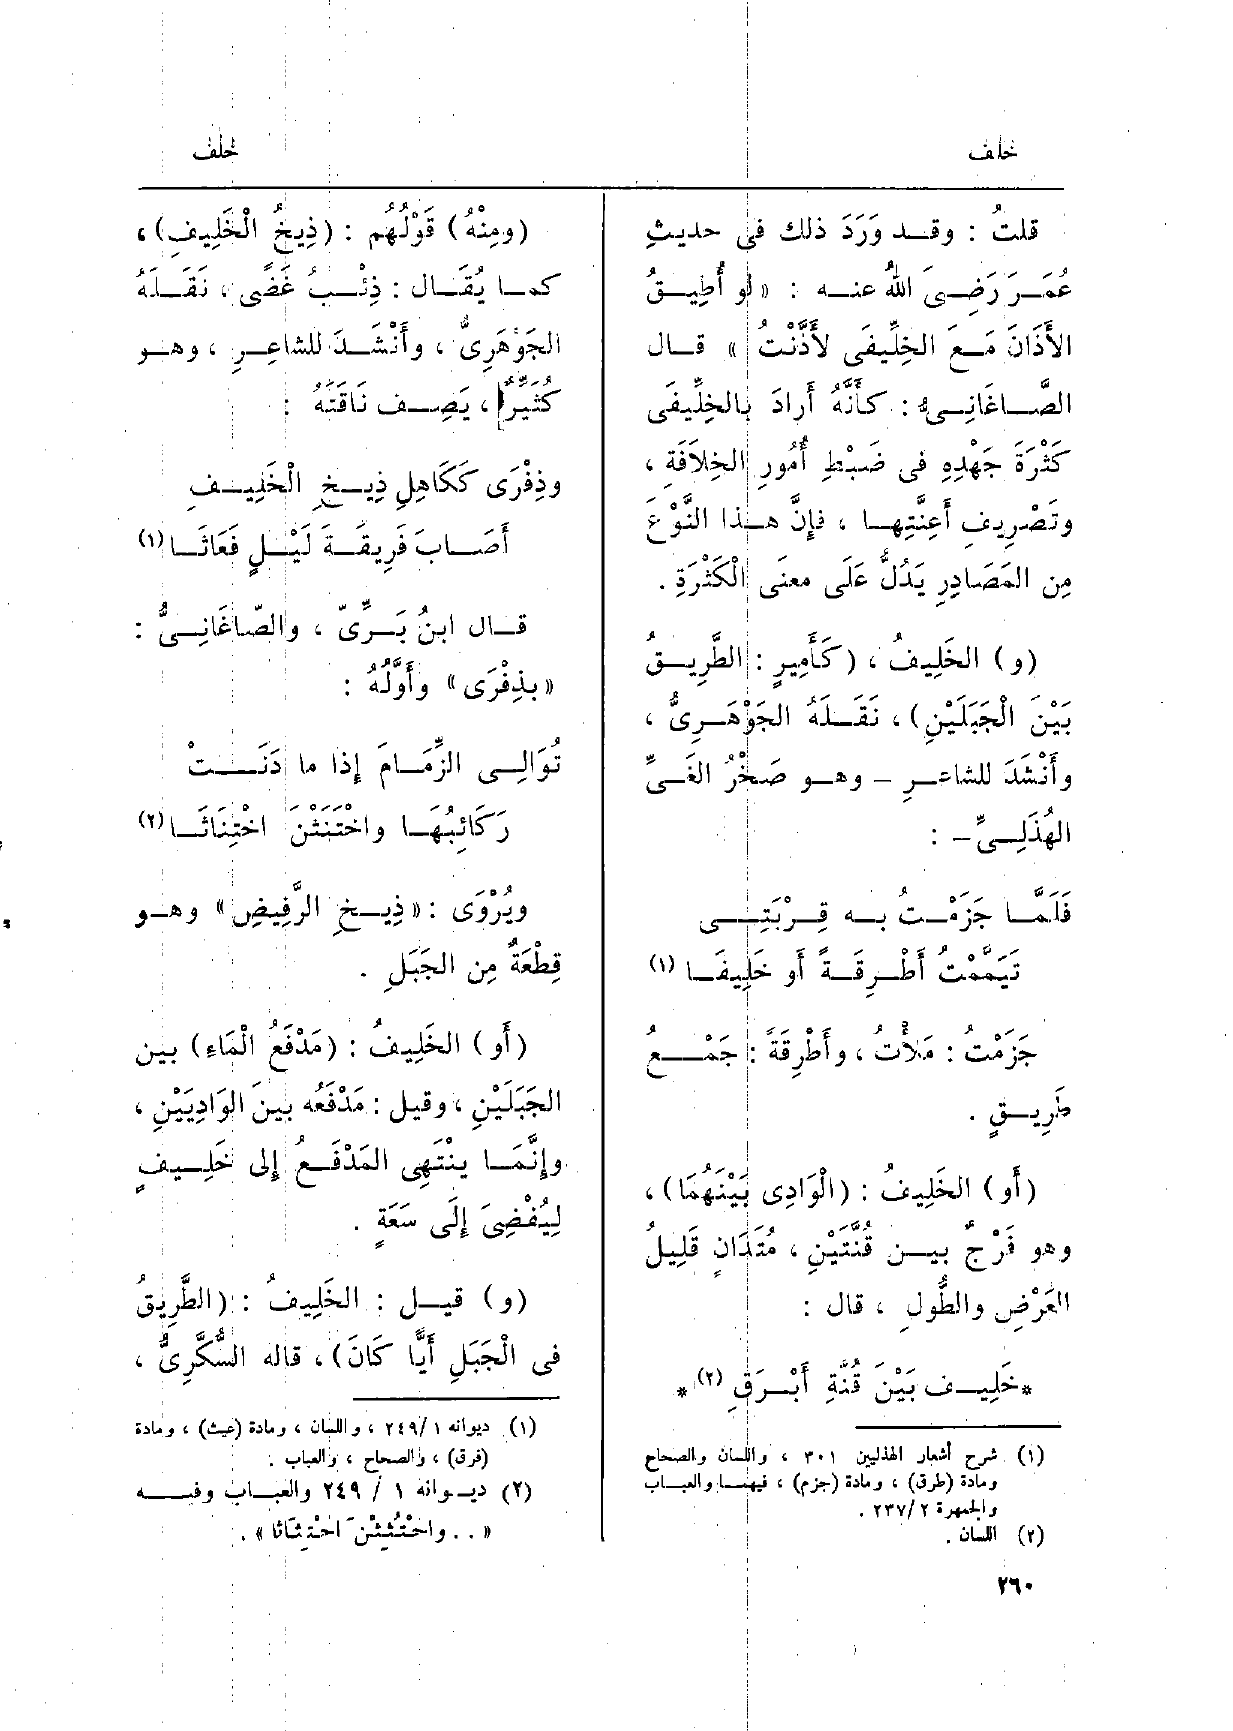 خلف
خلف
قلتُ : وقد وَرَدَ ذلك فى حديثِ
عُمَرَ رَضِىَ اللهُ عنه : « لو أُطِيقُ
الأَذَانَ مَعَ الخِلِّيفَى لأَذَّنْتُ » قال
الصَّاغَانِىُّ : كَأَنَّهُ أَرادَ بالخِلِّيفَى
كَثْرَةَ جَهْدِهِ فى ضَبْطِ أُمُورِ الخِلَافَةِ ،
وتَصْرِيفِ أَعِنَّتِها ، فإِنَّ هذا النَّوْعَ
مِن المَصَادِرِ يَدُلُّ عَلَى معنَى الْكَثْرَةِ .
(و) الخَلِيفُ ، (كَأَمِيرٍ : الطَّرِيقُ
بَيْنَ الْجَبَلَيْنِ) ، نَقَلَهُ الجَوْهَرِىُّ ،
وأَنْشَدَ للشاعرِ – وهو صَخْرُ الغَىِّ
الهُذَلِىِّ – :
فَلَمَّا جَزَمْتُ به قِرْبَتِى
تَيَمَّمْتُ أَطْرِقَةً أَو خَلِيفَا (١)
جَزَمْتُ : مَلأْتُ ، وأَطْرِقَةً : جَمْعُ
طَرِيقٍ .
(أَو) الخَلِيفُ : (الْوَادِى بَيْنَهُمَا) ،
وهو فَرْجٌ بين قُنَّتَيْنِ ، مُتَدَانٍ قَلِيلُ
العَرْضِ والطُّولِ ، قال :
*خَلِيف بَيْنَ قُنَّةِ أَبْرَقِ (٢)*
(١) شرح أشعار الهذليين ٣٠١ ، واللسان والصحاح
ومادة (طرق) ، ومادة (جزم) ، فيهما والعباب
والجمهرة ٢/٢٣٧ .
(٢) اللسان .
(ومِنْهُ) قَوْلُهُم : (ذِيخُ الْخَلِيفِ) ،
كما يُقَال : ذِئْبُ غَضًى ، نَقَلَهُ
الجَوْهَرِىُّ ، وأَنْشَدَ للشاعِرِ ، وهو
كُثَيِّرٌ ، يَصِف نَاقَتَهُ :
وذِفْرَى كَكَاهِلِ ذِيخِ الْخَلِيفِ
أَصَابَ فَرِيقَةَ لَيْلٍ فَعَاثَا (١)
قال ابنُ بَرِّىّ ، والصّاغَانِىُّ :
« بِذِفْرَى » وأَوَّلُهُ :
تُوَالِى الزِّمَامَ إِذا ما دَنَتْ
رَكَائِبُهَا واخْتَنَثْنَ اخْتِنَاثَا (٢)
ويُرْوَى : « ذِيخِ الرَّفِيضِ » وهو
قِطْعَةٌ مِن الجَبَلِ .
(أَو) الخَلِيفُ : (مَدْفَعُ الْمَاءِ) بين
الجَبَلَيْنِ ، وقيل : مَدْفَعُه بينَ الوَادِيَيْنِ ،
وإِنَّمَا ينْتَهِى المَدْفَعُ إِلى خَلِيفٍ
لِيُفْضِىَ إِلَى سَعَةٍ .
(و) قيل : الخَلِيفُ : (الطَّرِيقُ
فى الْجَبَلِ أَيًّا كَانَ) ، قاله السُّكَّرِىُّ ،
(١) ديوانه ١/٢٤٩ ، واللسان ، ومادة (عيث) ، ومادة
(فرق) ، والصحاح ، والعباب .
(٢) ديوانه ١ / ٢٤٩ والعباب وفيه
« . . واخْتُثِثْنَ اخْتِثَاثا » .
٢٦٠